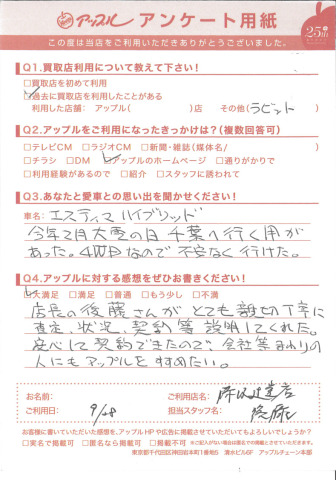 アップル アンケート用紙
25周年
この度は当店をご利用いただきありがとうございました。
Q1.買取店利用について教えて下さい!
□買取店を初めて利用
☑過去に買取店を利用したことがある
利用した店舗: アップル( )店 その他(ラビット)
Q2.アップルをご利用になったきっかけは?(複数回答可)
□テレビCM □ラジオCM □新聞・雑誌(媒体名/ )
□チラシ □DM ☑アップルのホームページ □通りがかりで
□利用経験があるので □紹介 □スタッフに誘われて
Q3.あなたと愛車との思い出を聞かせください!
車名: エスティマ ハイブリッド
今年2月大雪の日 千葉へ行く用が
あった。4WDなので不安なく行けた。
Q4.アップルに対する感想をぜひお書きください!
☑大満足 □満足 □普通 □もう少し □不満
店長の後藤さんがとても親切丁寧に
査定、状況、契約等 説明してくれた。
安心して契約できたので、会社等まわりの
人にもアップルをすすめたい。
お名前:
ご利用店名:
ご利用日: 9/28
担当スタッフ名: 後藤
お客様に書いていただいた感想を、アップルHPや広告に掲載させていただいてもよろしいでしょうか?
□実名で掲載可 □匿名なら掲載可 □掲載不可 ※ご記入がない場合は匿名での掲載とさせていただきます。
東京都千代田区神田岩本町1番地5 清水ビル6F アップルチェーン本部